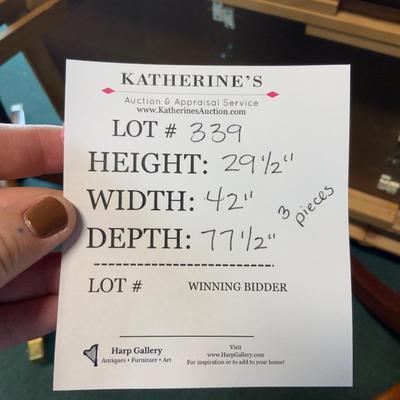 KATHERINE'S
Auction & Appraisal Service
www.KatherinesAuction.com
LOT # 339
HEIGHT: 29 1/2"
WIDTH: 42"
3 pieces
DEPTH: 77 1/2"
LOT # WINNING BIDDER
Harp Gallery
Antiques • Furniture • Art
Visit
www.HarpGallery.com
For inspiration or to add to your home!